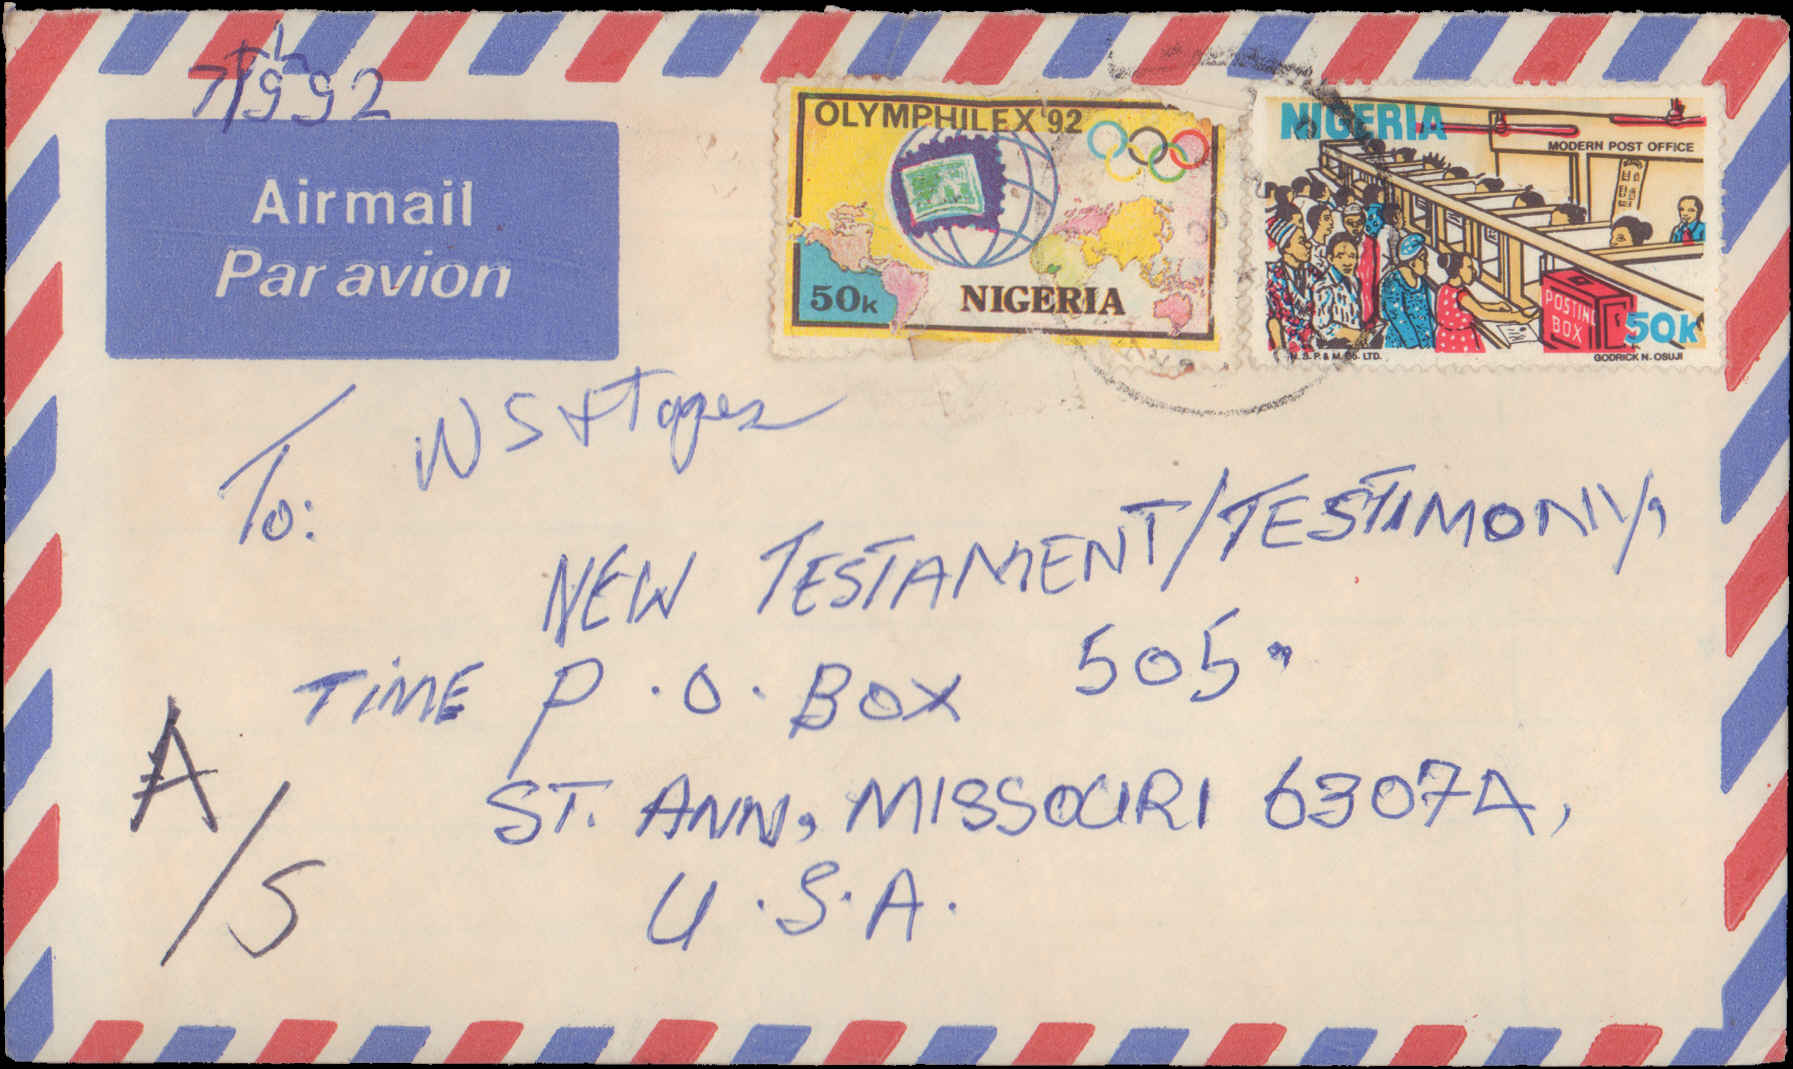 Airmail
Par avion
OLYMPHILEX '92
50k
NIGERIA
NIGERIA
MODERN POST OFFICE
POSTING
BOX
50k
N.S.P. & M. Co. LTD.
GODRICK N. OSUJI
To:
NEW TESTAMENT/TESTIMONY,
TIME P.O. BOX 505.
ST. ANN, MISSOURI 63074,
U.S.A.
A/S